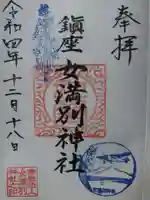 奉拝
鎮座
女満別神社
令和四年十二月十八日